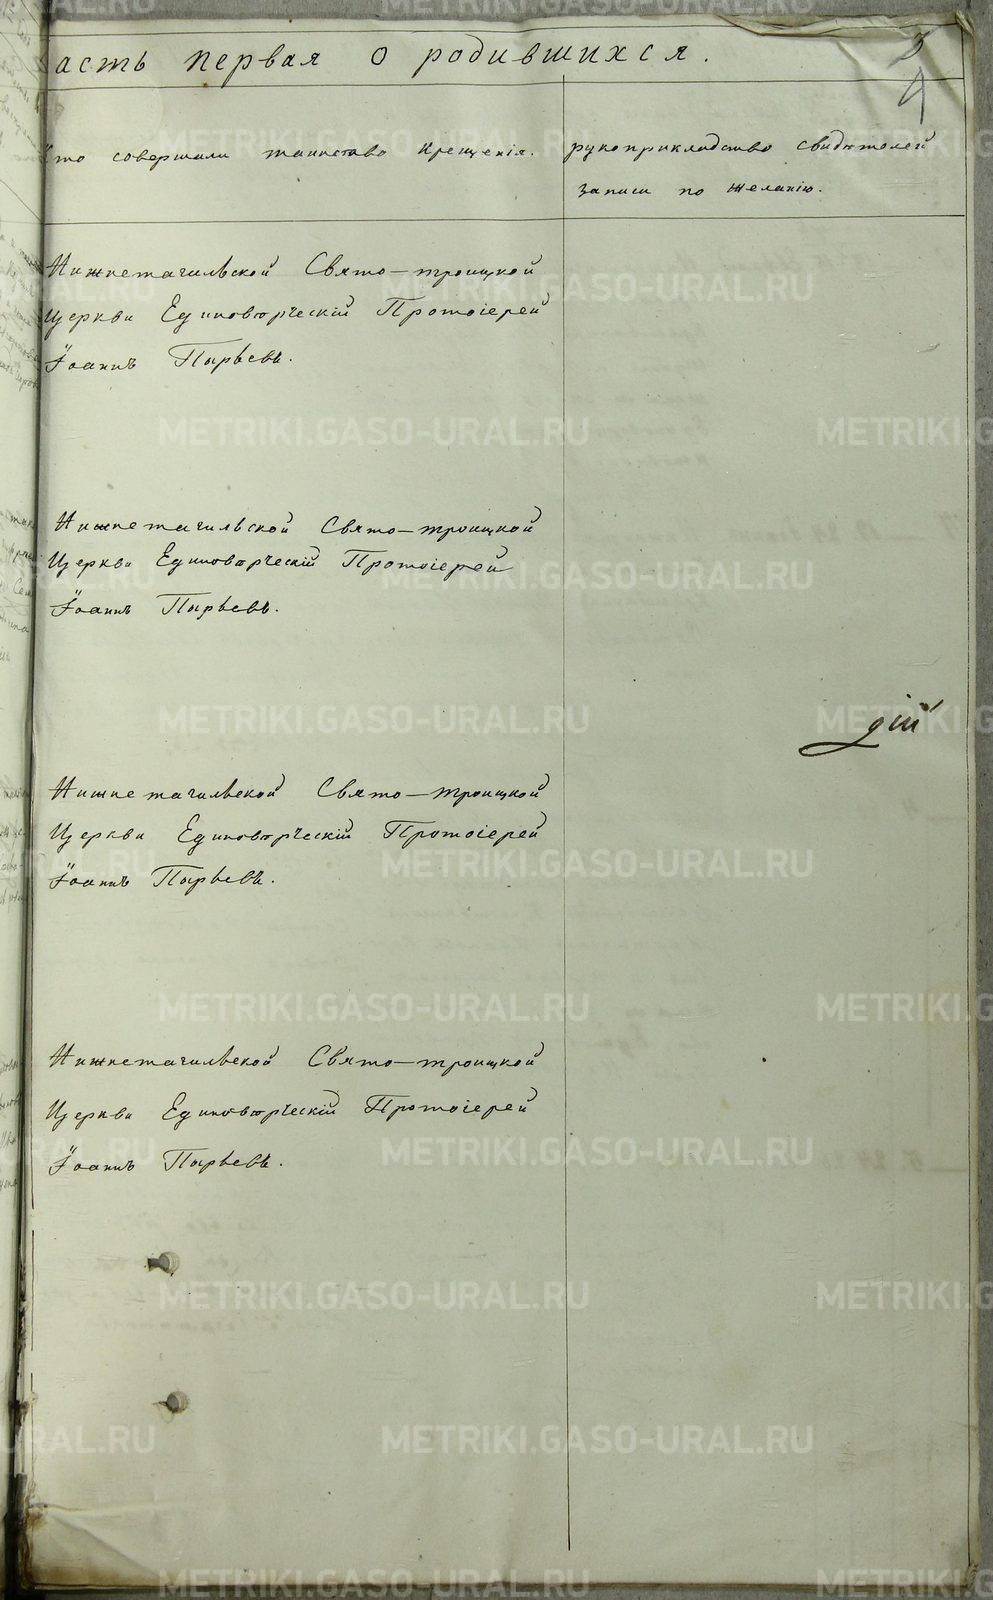 асть первая о родившихся.
3
4
то совершали таинство крещенія.
рукоприкладство свидѣтелей
записи по желанію.
Нижнетагильской Свято-троицкой
Церкви Единовѣрческій Протоіерей
Іоаннъ Пырьевъ.
Нижнетагильской Свято-троицкой
Церкви Единовѣрческій Протоіерей
Іоаннъ Пырьевъ.
дій
Нижнетагильской Свято-троицкой
Церкви Единовѣрческій Протоіерей
Іоаннъ Пырьевъ.
Нижнетагильской Свято-троицкой
Церкви Единовѣрческій Протоіерей
Іоаннъ Пырьевъ.
METRIKI.GASO-URAL.RU